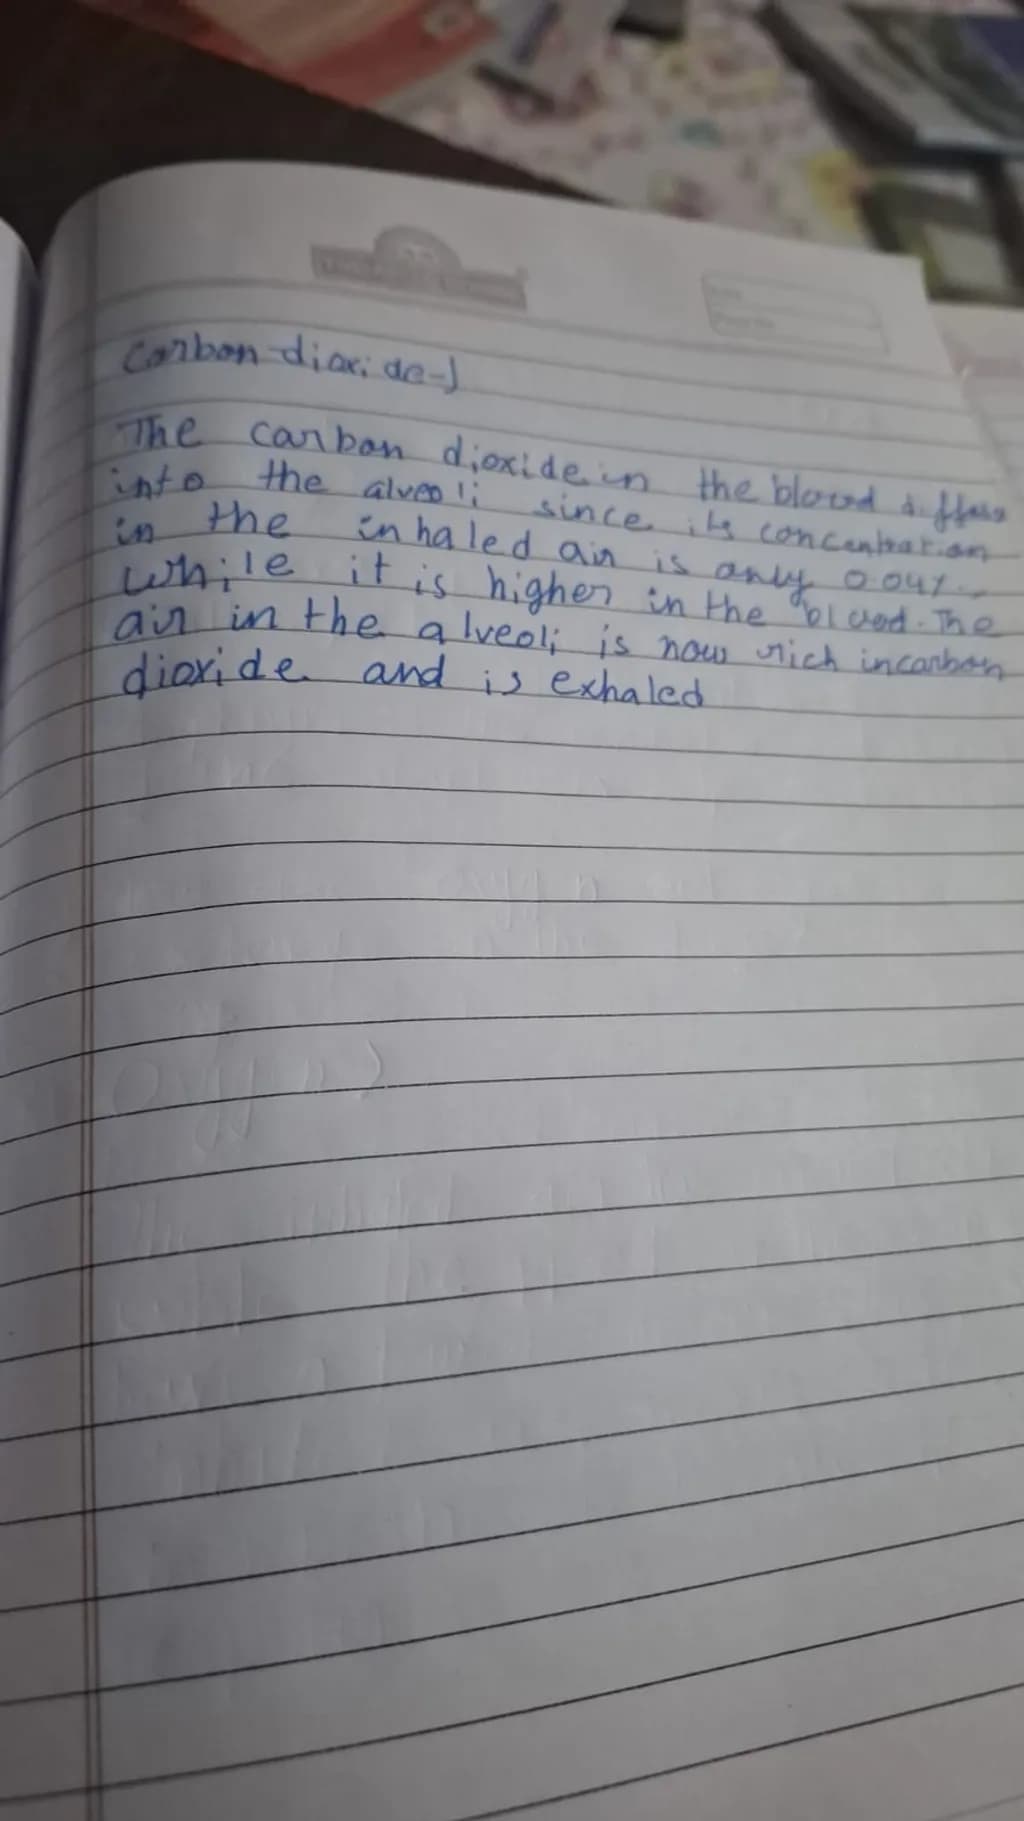 Carbon dioxide-)
The carbon dioxide in the blood diffuses
into the alveoli since its concentration
in the inhaled air is only 0.04%.
while it is higher in the blood. The
air in the alveoli is now rich in carbon
dioxide and is exhaled